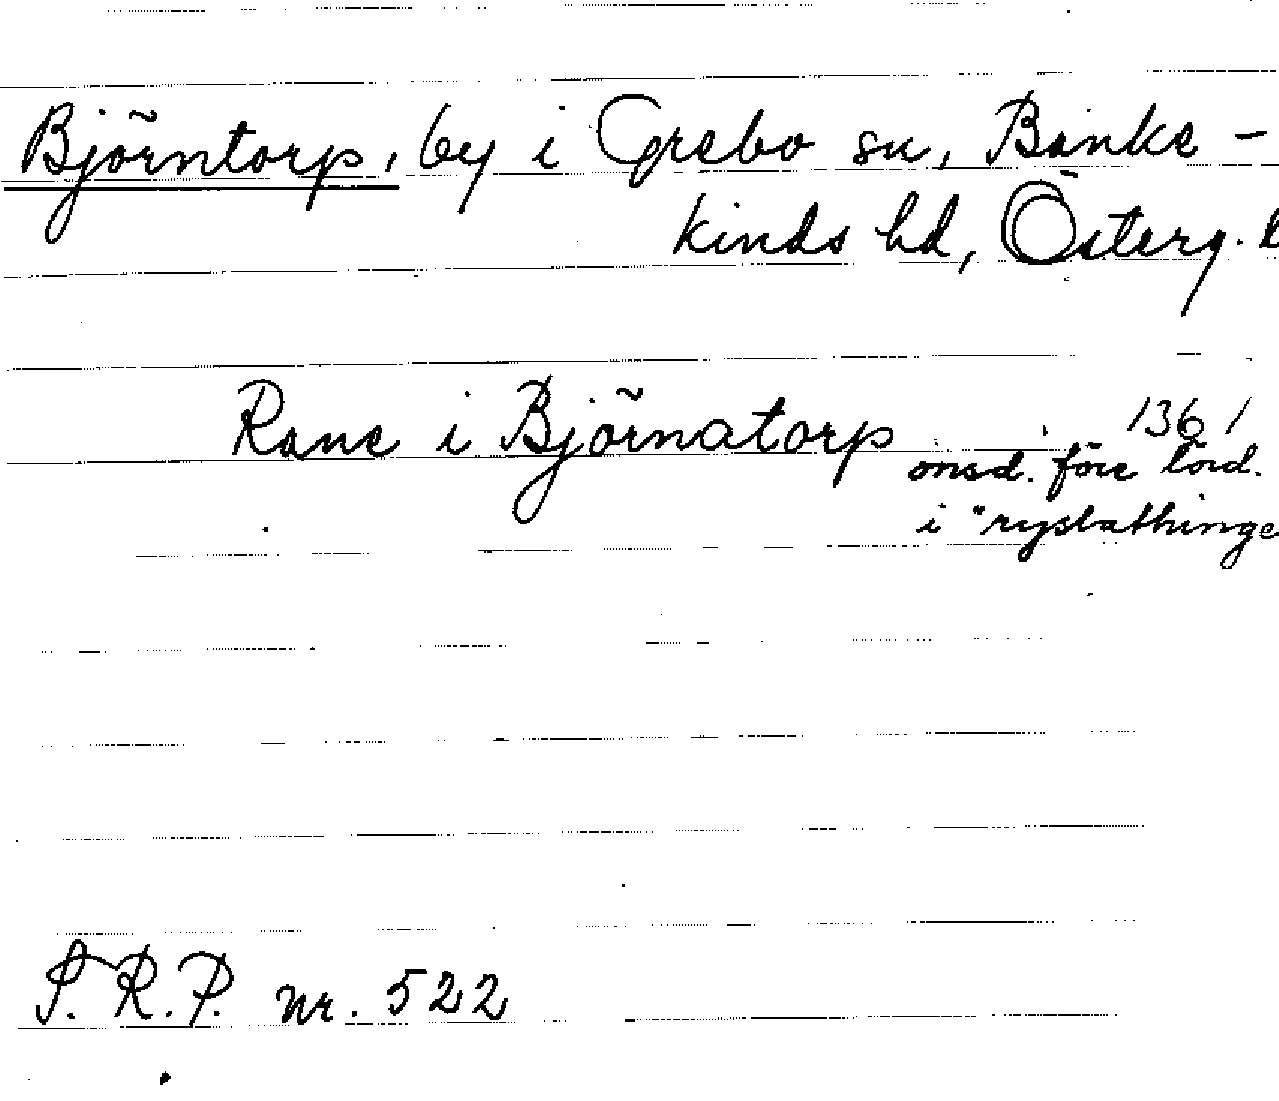 Björntorp, by i Grebo sn, Banke-
kinds hd, Österg. l
Rane i Björnatorp 1361
onsd. före lörd.
i "ryslathinge
S.R.P. nr. 522